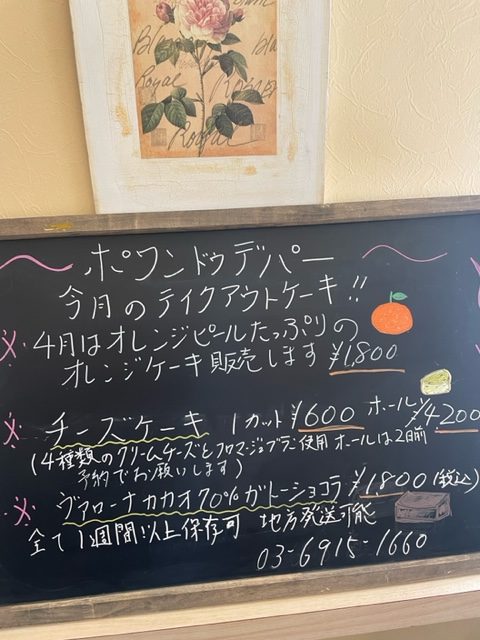 Royal
Royal
ポワンドゥデパー
今月のテイクアウトケーキ!!
※4月はオレンジピールたっぷりの
オレンジケーキ販売します ¥1,800
※チーズケーキ 1カット¥600 ホール¥4200
(4種類のクリームチーズとフロマージュブラン使用 ホールは2日前
予約でお願いします)
※ヴァローナカカオ70%ガトーショコラ ¥1800(税込)
全て1週間以上保存可 地方発送可能
03-6915-1660